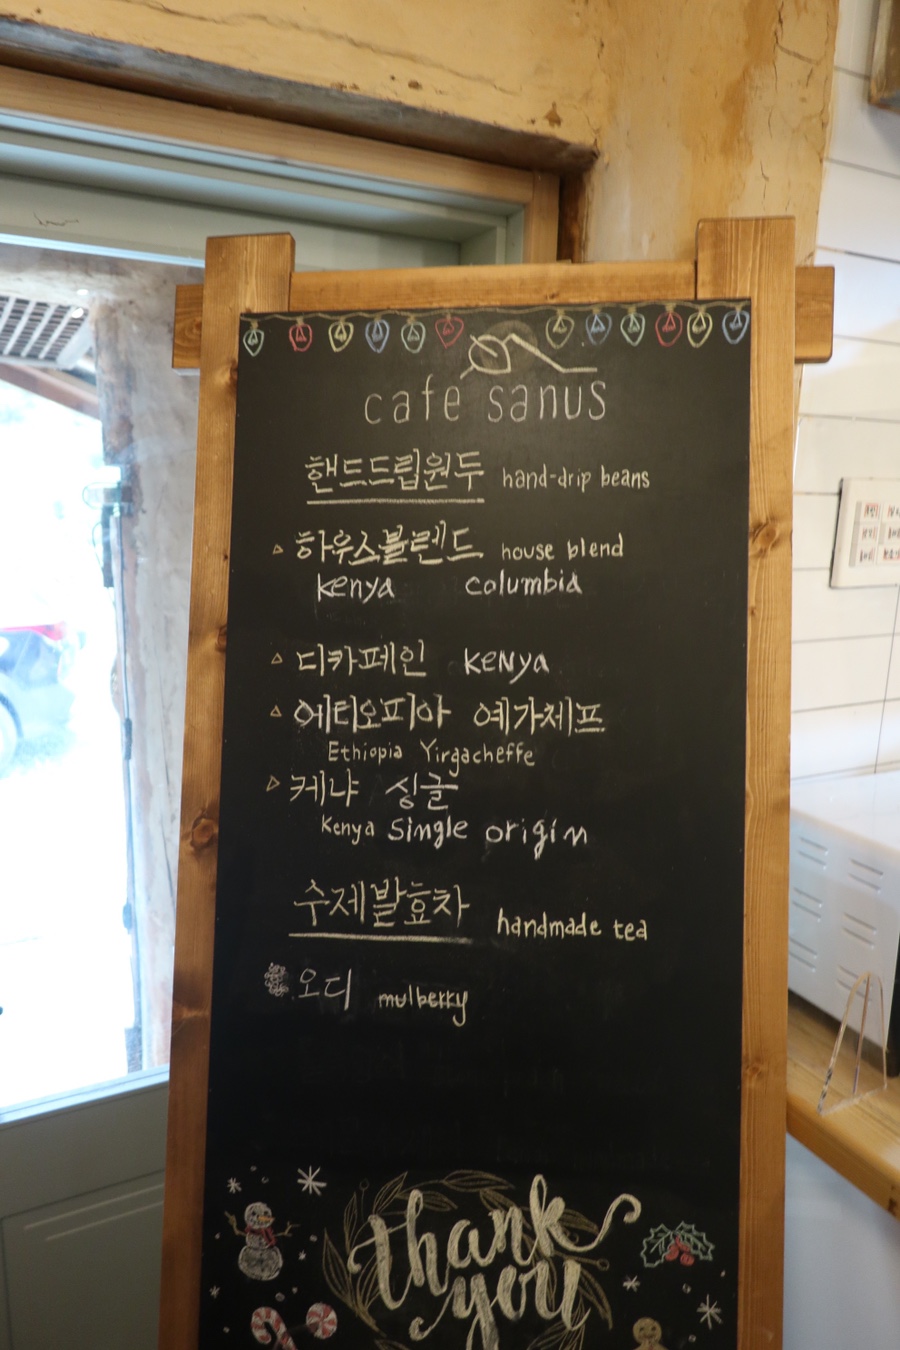 cafe sanus
핸드드립원두 hand-drip beans
▹ 하우스블렌드 house blend
kenya columbia
▵ 디카페인 KENYA
▵ 에티오피아 예가체프
Ethiopia Yirgacheffe
▹ 케냐 싱글
Kenya Single origin
수제발효차 handmade tea
오디 mulberry
thank
you